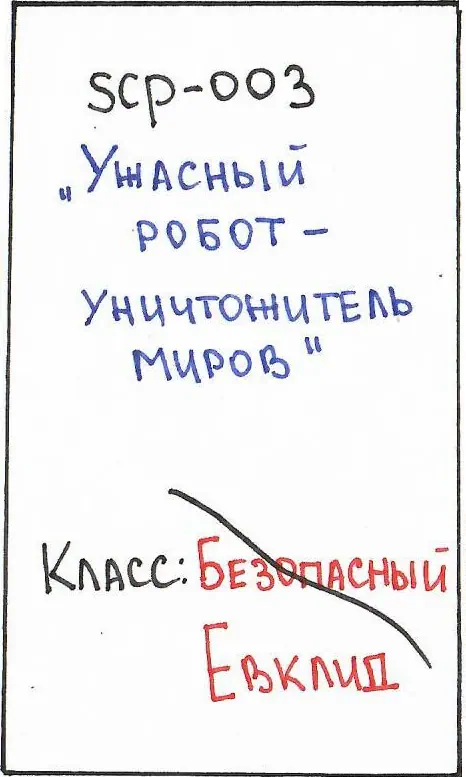 SCP-003
„Ужасный
робот –
уничтожитель
миров"
Класс: Безопасный
Евклид